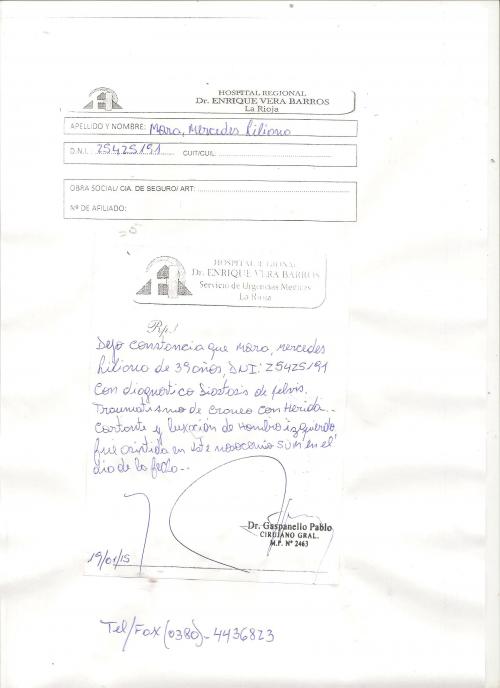 HOSPITAL REGIONAL
Dr. ENRIQUE VERA BARROS
La Rioja
APELLIDO Y NOMBRE: Mara, Mercedes Liliana
D.N.I. 25425191 CUIT/CUIL:
OBRA SOCIAL/ CIA. DE SEGURO/ ART:
Nº DE AFILIADO:
HOSPITAL REGIONAL
Dr. ENRIQUE VERA BARROS
Servicio de Urgencias Medicas
La Rioja
Rp/
Dejo constancia que Mara, Mercedes
Liliana de 39 años, DNI: 25425191
Con diagnostico Diastasis de pelvis.
Traumatismo de craneo con Herida
Cortante y luxación de Hombro izquierdo
fue asistida en este nosocomio en el
dia de la fecha.
Dr. Gaspanello Pablo
CIRUJANO GRAL.
M.P. Nº 2463
19/01/15
Tel/Fax (0380)-4436823